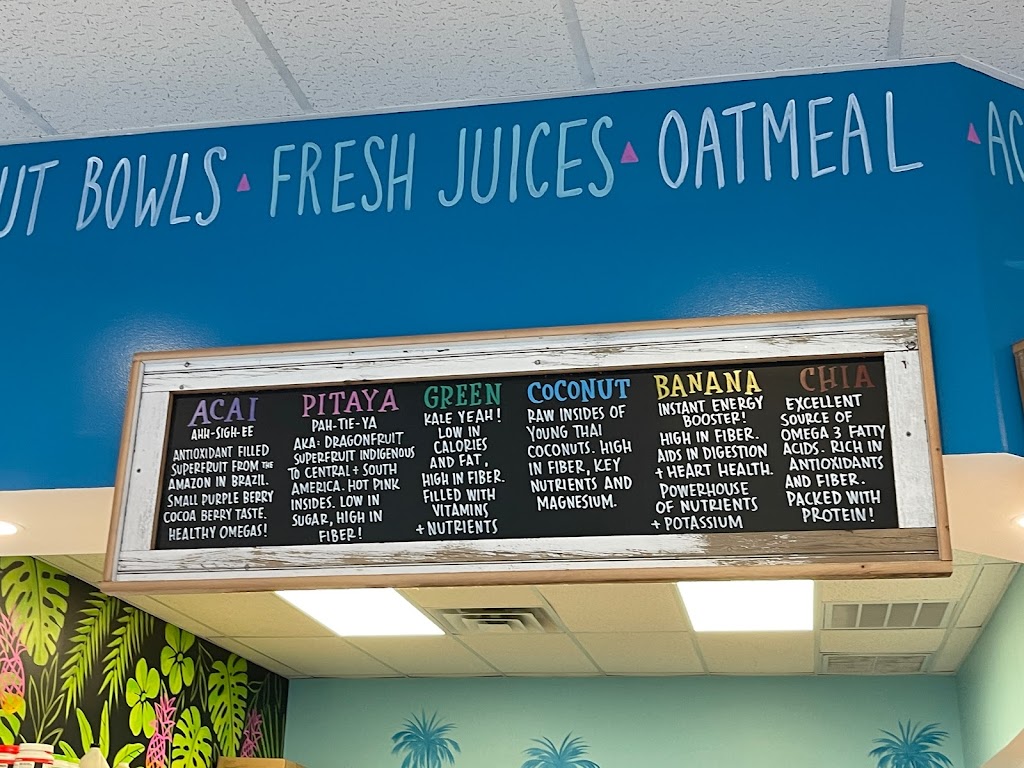 BOWLS FRESH JUICES OATMEAL
ACAI
AHH-SIGH-EE
ANTIOXIDANT FILLED
SUPERFRUIT FROM THE
AMAZON IN BRAZIL.
SMALL PURPLE BERRY
COCOA BERRY TASTE.
HEALTHY OMEGAS!
PITAYA
PAH-TIE-YA
AKA: DRAGONFRUIT
SUPERFRUIT INDIGENOUS
TO CENTRAL + SOUTH
AMERICA. HOT PINK
INSIDES. LOW IN
SUGAR, HIGH IN
FIBER!
GREEN
KALE YEAH!
LOW IN
CALORIES
AND FAT,
HIGH IN FIBER.
FILLED WITH
VITAMINS
+ NUTRIENTS
COCONUT
RAW INSIDES OF
YOUNG THAI
COCONUTS. HIGH
IN FIBER, KEY
NUTRIENTS AND
MAGNESIUM.
BANANA
INSTANT ENERGY
BOOSTER!
HIGH IN FIBER.
AIDS IN DIGESTION
+ HEART HEALTH.
POWERHOUSE
OF NUTRIENTS
+ POTASSIUM
CHIA
EXCELLENT
SOURCE OF
OMEGA 3 FATTY
ACIDS. RICH IN
ANTIOXIDANTS
AND FIBER.
PACKED WITH
PROTEIN!